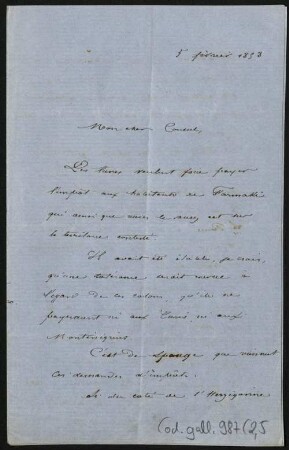 5 février 1853
Mon cher Consul,
Les Turcs veulent faire payer
l'impôt aux habitants de
qui ainsi que vous le savez est sur
le territoire contesté.
Il avait été établi, je crois,
qu'une tolérance serait envers à
l'égard de ces colons, qu'ils ne
payeraient ni aux Turcs ni aux
Monténégrins
C'est de Spouge que viennent
ces demandes d'impôts.
du coté de l'Herzégovine
Cod. gall. 987 (2,5